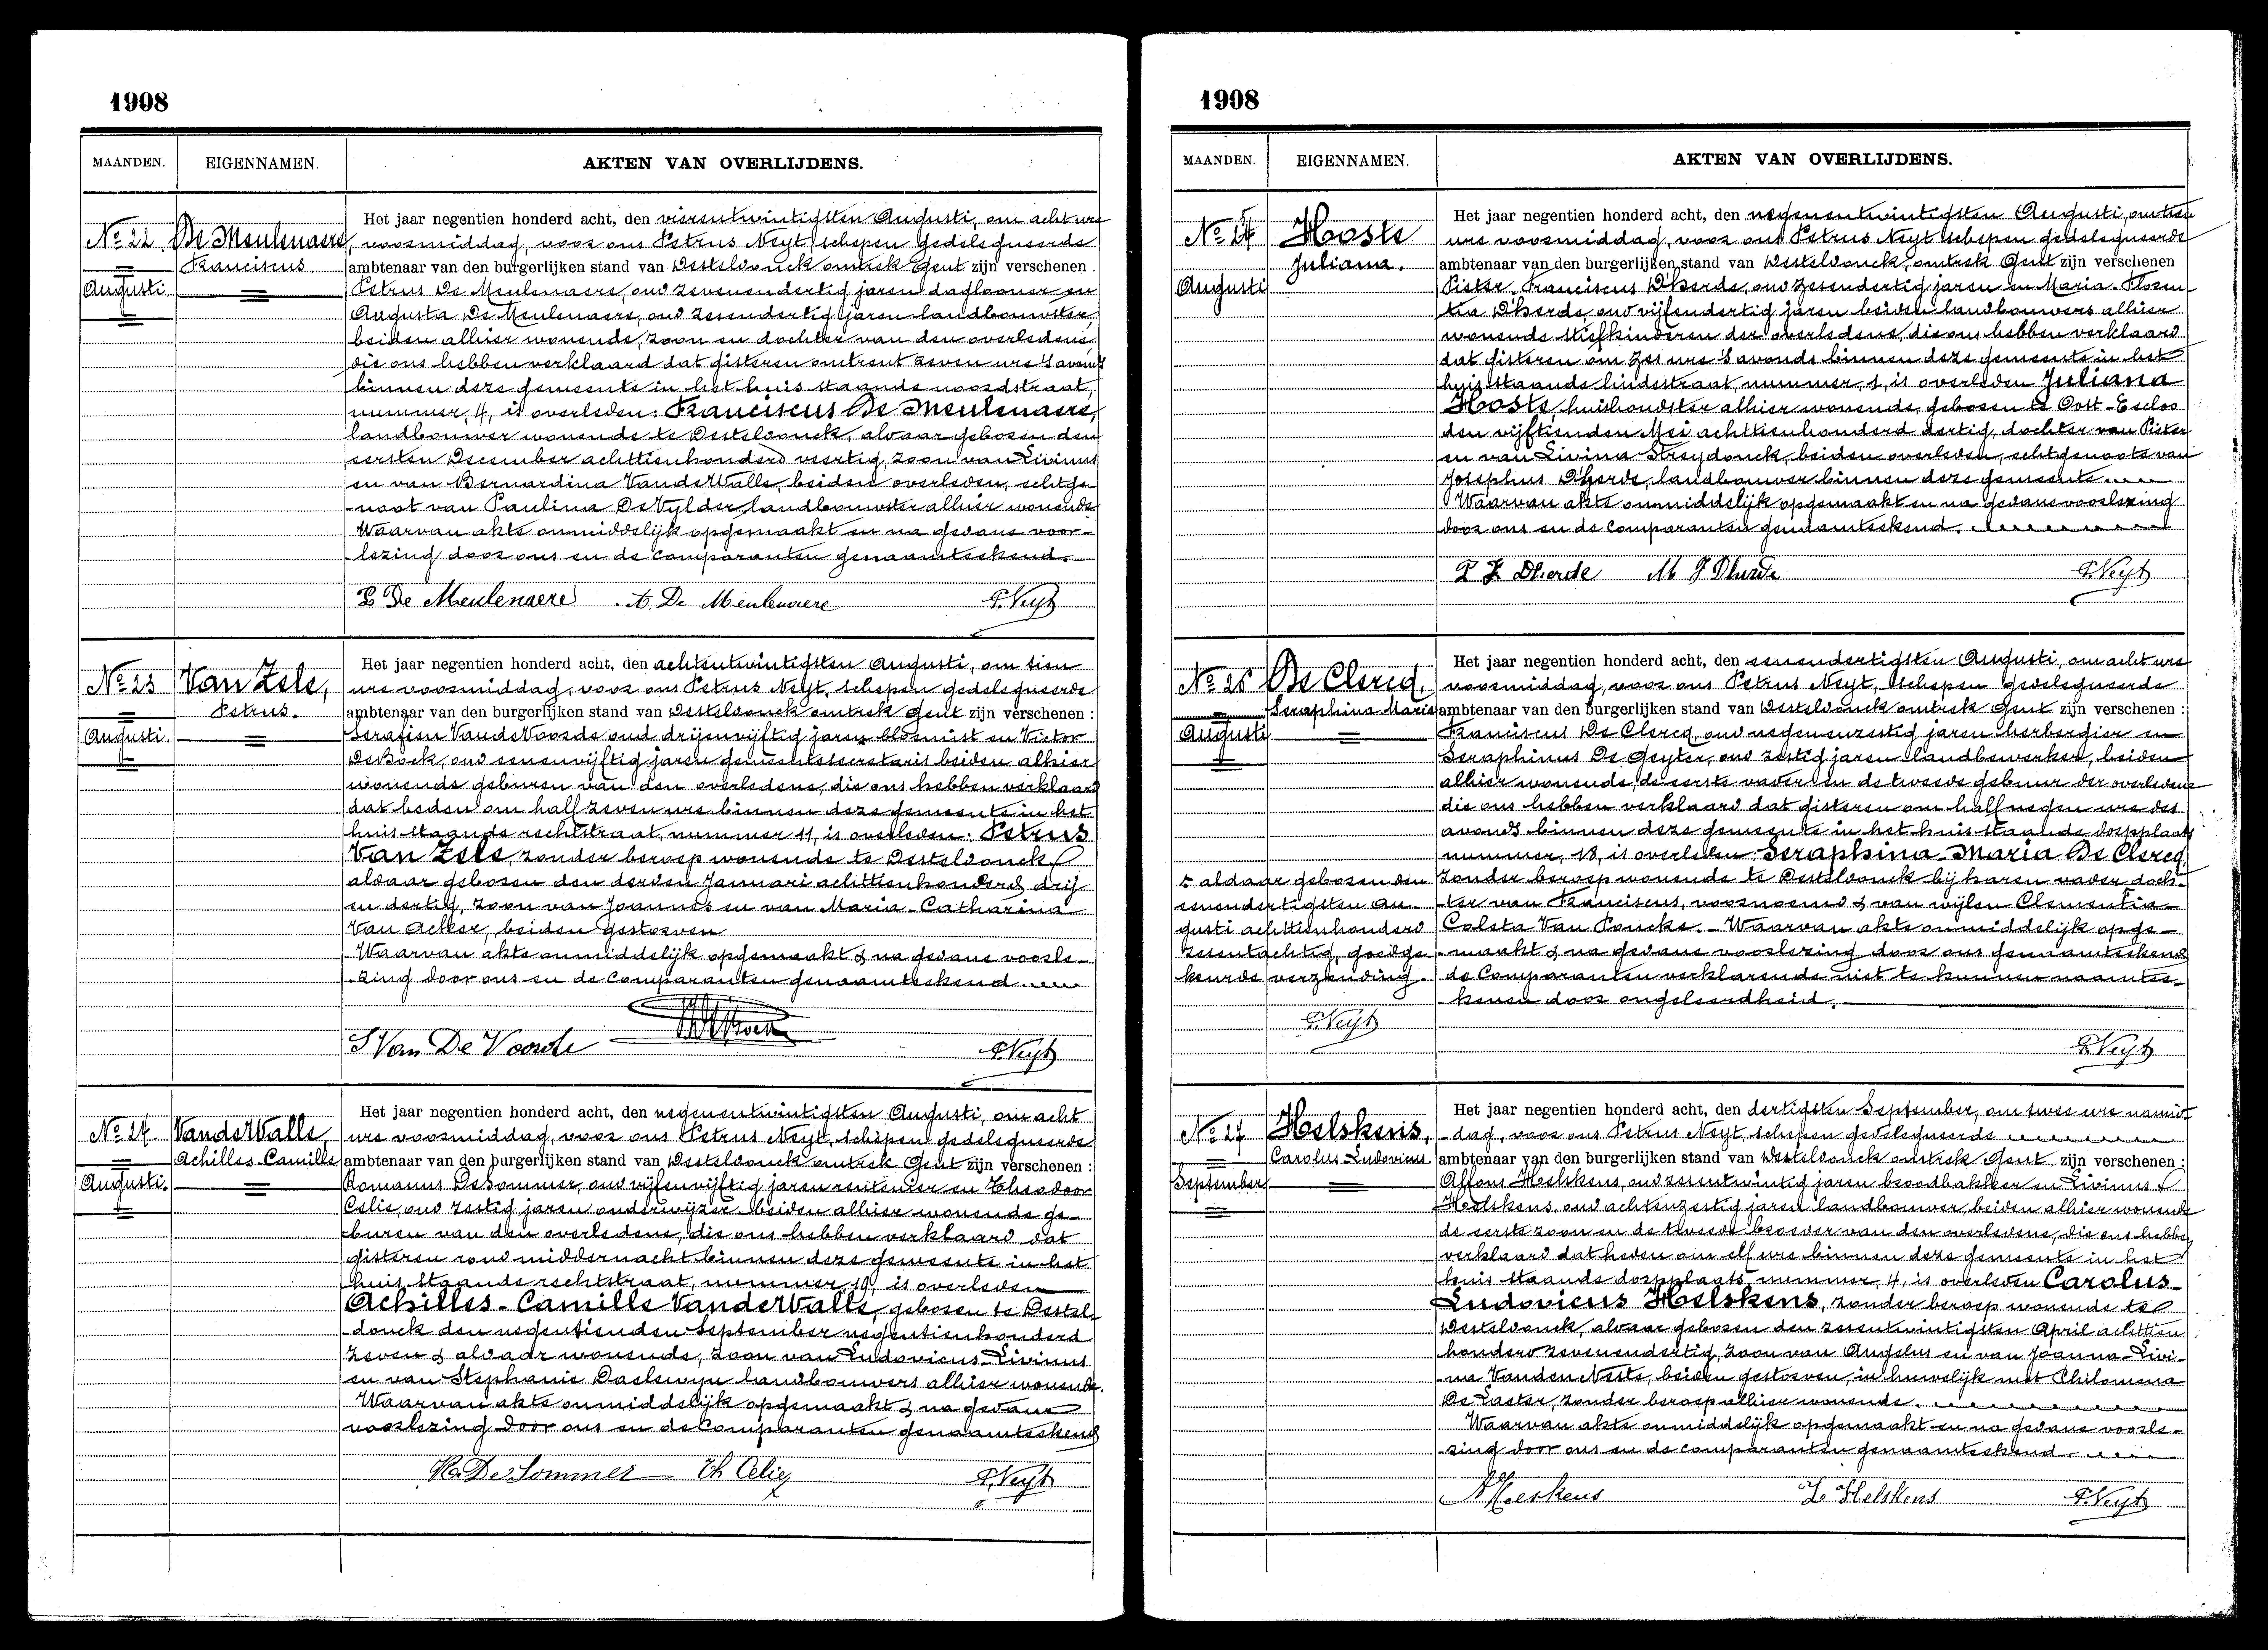 1908
MAANDEN. EIGENNAMEN. AKTEN VAN OVERLIJDENS.
No 22 De Meulenaere
Franciscus
Augusti
Het jaar negentien honderd acht, den vierentwintigsten Augusti, om acht ure
voormiddag, voor ons Petrus Neyt, schepen gedelegueerde
ambtenaar van den burgerlijken stand van Desteldonck omtrek Gent zijn verschenen
Petrus De Meulenaere, oud zevenendertig jaren daglooner en
Augusta De Meulenaere, oud zesendertig jaren landbouwster,
beiden alhier wonende, zoon en dochter van den overledene
die ons hebben verklaard dat gisteren omtrent zeven ure 's avonds
binnen deze gemeente in het huis staande noordstraat,
nummer, 4, is overleden: Franciscus De Meulenaere,
landbouwer wonende te Desteldonck, aldaar geboren den
eersten December achttienhonderd veertig, zoon van Livinus
en van Bernardina VandeWalle, beiden overleden, echtge-
noot van Paulina De Vylder landbouwster alhier wonende
Waarvan akte onmiddelijk opgemaakt en na gedane voor-
lezing door ons en de comparanten genaamteekend.
P De Meulenaere A. De Meulenaere P. Neyt
No 23 Van Zele,
Petrus.
Augusti.
Het jaar negentien honderd acht, den achtentwintigsten Augusti, om tien
ure voormiddag, voor ons Petrus Neyt, schepen gedelegueerde
ambtenaar van den burgerlijken stand van Desteldonck omtrek Gent zijn verschenen :
Serafien VandeVoorde oud drijenvijftig jaren bloemist en Victor
DeBock, oud eenenvijftig jaren gemeentesecretaris beiden alhier
wonende geburen van den overledene, die ons hebben verklaard
dat heden om half zeven ure binnen deze gemeente in het
huis staande rechtstraat, nummer 11, is overleden: Petrus
Van Zele, zonder beroep wonende te Desteldonck
aldaar geboren den derden Januari achttienhonderd drij
en dertig, zoon van Joannes en van Maria-Catharina
Van Acker, beiden gestorven
Waarvan akte onmiddelijk opgemaakt & na gedane voorle-
zing door ons en de comparanten genaamteekend
S Van De Voorde P. Neyt
No 24. VandeWalle,
Achilles-Camille
Augusti.
Het jaar negentien honderd acht, den negenentwintigsten Augusti, om acht
ure voormiddag, voor ons Petrus Neyt, schepen gedelegueerde
ambtenaar van den burgerlijken stand van Desteldonck omtrek Gent zijn verschenen :
Romanus DeSommer, oud vijfenvijftig jaren rentenier en Theodoor
Celie, oud zestig jaren onderwijzer beiden alhier wonende ge-
buren van den overledene, die ons hebben verklaard dat
gisteren rond middernacht binnen deze gemeente in het
huis staande rechtstraat, nummer 19, is overleden
Achilles-Camille VandeWalle, geboren te Destel-
donck den negentienden September negentienhonderd
zeven & aldaar wonende, zoon van Ludovicus-Livinus
en van Stephanie Daelewyn landbouwers alhier wonende.
Waarvan akte onmiddelijk opgemaakt & na gedane
voorlezing door ons en de Comparanten genaamteekend
R. DeSommer Th Celie P. Neyt
1908
MAANDEN. EIGENNAMEN. AKTEN VAN OVERLIJDENS.
Hoste
Juliana.
Augusti
Het jaar negentien honderd acht, den negenentwintigsten Augusti, om tien
ure voormiddag, voor ons Petrus Neyt schepen gedelegueerde
ambtenaar van den burgerlijken stand van Desteldonck, omtrek Gent zijn verschenen
Pieter-Franciscus D'herde, oud zesendertig jaren en Maria-Floren-
tia D'herde, oud vijfendertig jaren beiden landbouwers alhier
wonende stiefkinderen der overledene, die ons hebben verklaard
dat gisteren om zes ure 's avonds binnen deze gemeente in het
huis staande lindestraat, nummer, 1, is overleden Juliana
Hoste, huishoudster alhier wonende, geboren te Oost-Eecloo
den vijftienden Mei achttienhonderd dertig, dochter van Pieter
en van Livina Streydonck, beiden overleden, echtgenoote van
Josephus D'herde, landbouwer binnen deze gemeente
Waarvan akte onmiddelijk opgemaakt en na gedane voorlezing
door ons en de comparanten genaamteekend.
P F Dherde M F Dherde P. Neyt
No 26 De Clercq,
Seraphina Maria
Augusti
Het jaar negentien honderd acht, den eenendertigsten Augusti, om acht ure
voormiddag, voor ons Petrus Neyt, schepen gedelegueerde
ambtenaar van den burgerlijken stand van Desteldonck omtrek Gent zijn verschenen :
Franciscus De Clercq, oud negenenzestig jaren herbergier en
Seraphinus De Geyter, oud zestig jaren landbewerker, beiden
alhier wonende, de eerste vader en de tweede gebuur der overledene
die ons hebben verklaard dat gisteren om half negen ure des
avonds binnen deze gemeente in het huis staande dorpplaats
nummer, 18, is overleden Seraphina-Maria De Clercq,
zonder beroep wonende te Desteldonck bij haren vader doch-
ter van Franciscus, voornoemd & van wijlen Clementia-
Coleta Van Poucke.- Waarvan akte onmiddelijk opge-
maakt & na gedane voorlezing door ons genaamteekend
de Comparanten verklarende niet te kunnen naamtee-
kenen door ongeleerdheid.
aldaar geboren den
eenendertigsten Au-
gusti achttienhonderd
zesentachtig, goedge-
keurde verzending.
P. Neyt
P. Neyt
No 27 Helskens,
Carolus-Ludovicus.
September
Het jaar negentien honderd acht, den dertigsten September, om twee ure namid-
dag, voor ons Petrus Neyt, schepen gedelegueerde
ambtenaar van den burgerlijken stand van Desteldonck omtrek Gent zijn verschenen :
Alfons Helskens, oud zesentwintig jaren broodbakker en Livinus
Helskens, oud achtenzestig jaren landbouwer, beiden alhier wonende
de eerste zoon en de tweede broeder van den overledene, die ons hebben
verklaard dat heden om elf ure binnen deze gemeente in het
huis staande dorpplaats, nummer, 4, is overleden Carolus-
Ludovicus Helskens, zonder beroep wonende te
Desteldonck, aldaar geboren den zesentwintigsten April achttien
honderd zevenendertig, zoon van Angelus en van Joanna-Livi-
na Vanden Neste, beiden gestorven, in huwelijk met Philomena
De Laeter, zonder beroep alhier wonende.
Waarvan akte onmiddelijk opgemaakt en na gedane voorle-
zing door ons en de comparanten genaamteekend
A Helskens L. Helskens P. Neyt